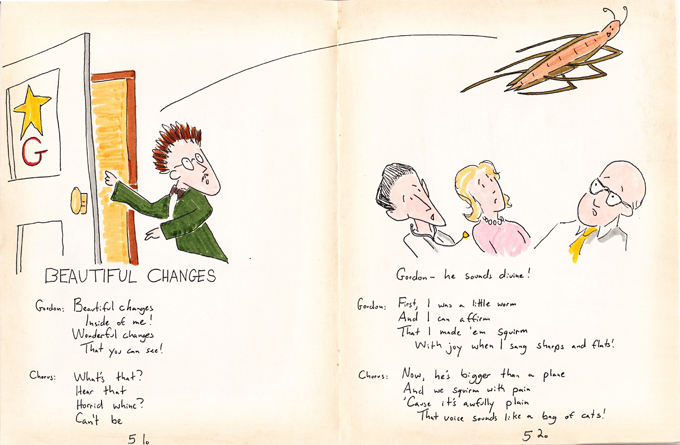 G
BEAUTIFUL CHANGES
Gordon: Beautiful changes
Inside of me!
Wonderful changes
That you can see!
Chorus: What's that?
Hear that
Horrid whine?
Can't be
51.
Gordon - he sounds divine!
Gordon: First, I was a little worm
And I can affirm
That I made 'em squirm
With joy when I sang sharps and flats!
Chorus: Now, he's bigger than a plane
And we squirm with pain
'Cause it's awfully plain
That voice sounds like a bag of cats!
52.